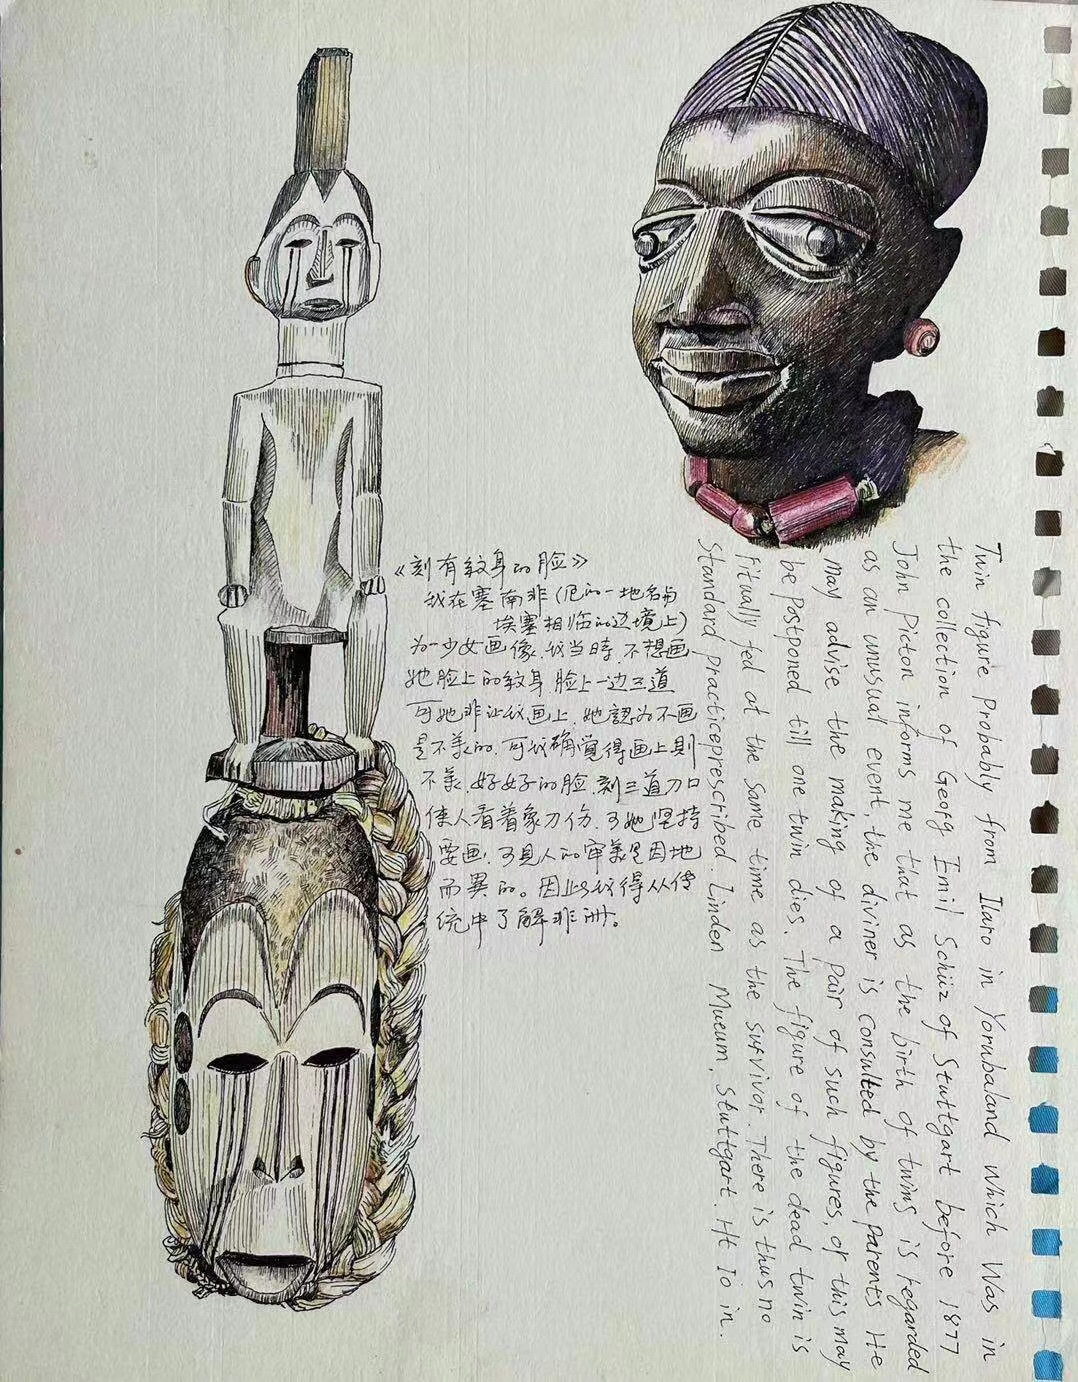 《刻有紋身的脸》
我在塞南非(尼的一地名与
埃塞相临的边境上)
为一少女画像.我当時.不想画
她脸上的紋身 脸上一边三道
可她非让我画上.她認为不画
是不美的.可我确覺得画上則
不美.好好的脸.刻三道刀口
使人看着象刀伤.可她坚持
要画.可見人的审美是因地
而異的。因此我得从传
统中了解非洲。
Twin figure Probably from Ilaro in Yorubaland which Was in
the collection of Georg Emil Schüz of Stuttgart before 1877
John Picton informs me that as the birth of twins is regarded
as an unusual event, the diviner is consulted by the parents He
may advise the making of a pair of such figures, or this may
be postponed till one twin dies. The figure of the dead twin is
ritually fed at the same time as the survivor. There is thus no
standard practiceprescribed. Linden Mueum, Stuttgart. Ht Io in.